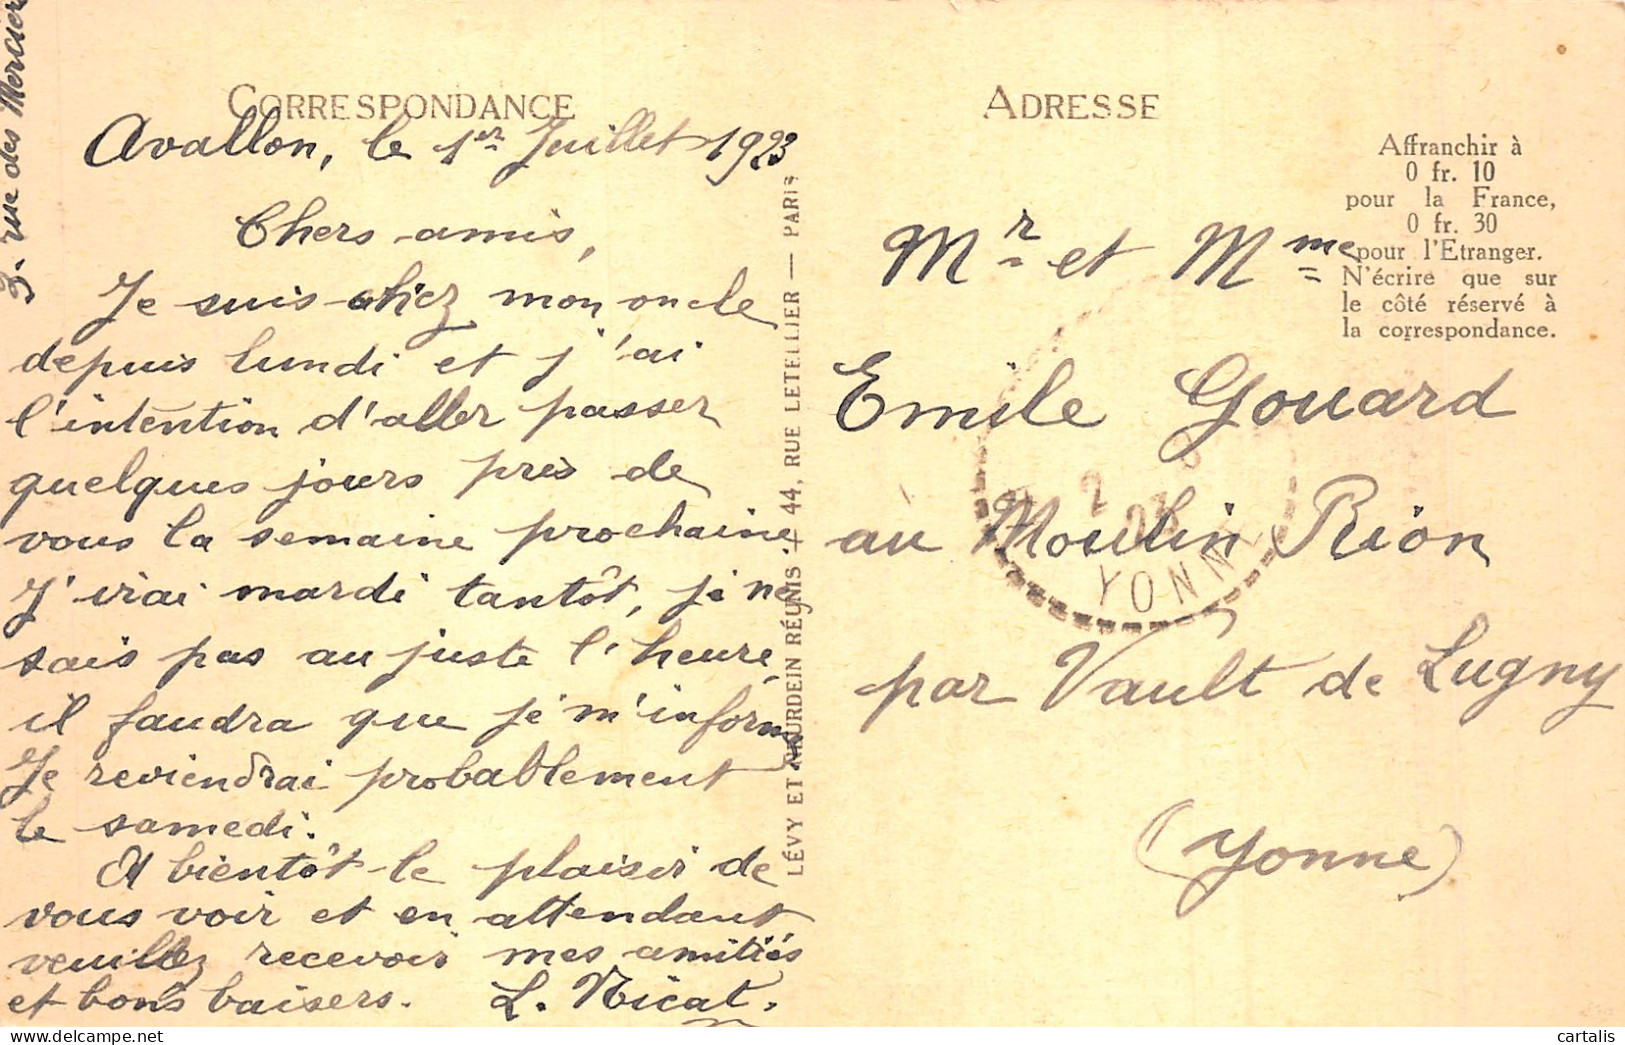 3. rue des Mercier
CORRESPONDANCE
Avallon, le 1er Juillet 1923
Chers amis,
Je suis chez mon oncle
depuis lundi et j'ai
l'intention d'aller passer
quelques jours près de
vous la semaine prochaine.
J'irai mardi tantôt, je ne
sais pas au juste l'heure,
il faudra que je m'informe
Je reviendrai probablement
le samedi.
A bientôt le plaisir de
vous voir et en attendant
veuillez recevoir mes amitiés
et bons baisers. L. Nicat.
LÉVY ET NEURDEIN RÉUNIS — 44, RUE LETELLIER — PARIS
ADRESSE
Affranchir à
0 fr. 10
pour la France,
0 fr. 30
pour l'Etranger.
N'écrire que sur
le côté réservé à
la correspondance.
Mr et Mme
Emile Gouard
au Moulin Riôn
par Vault de Lugny
(Yonne)
2
23
YONNE
cartalis